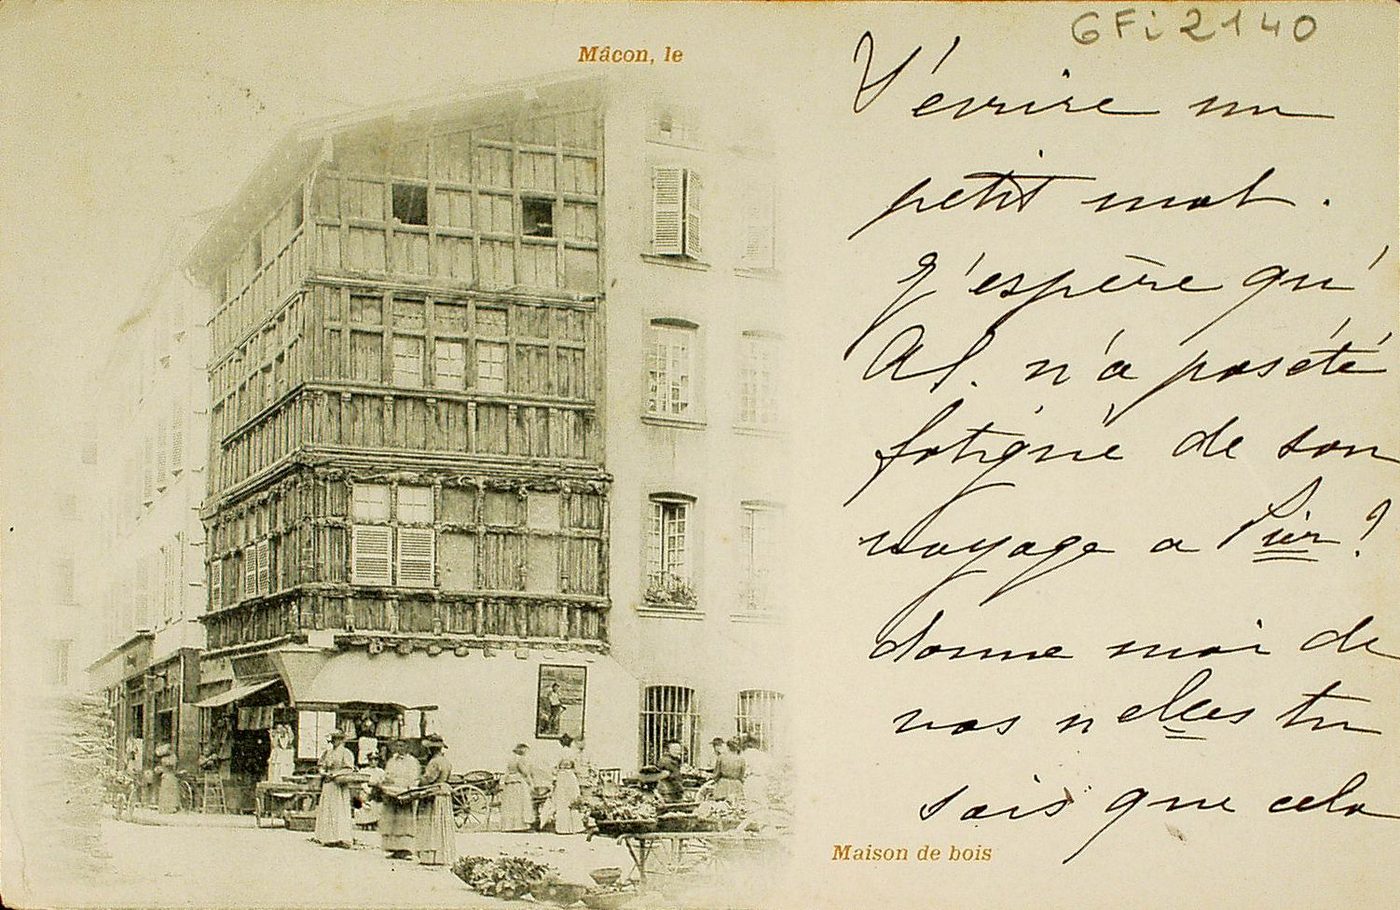 6Fi 2140
Mâcon, le
t'écrire un
petit mot.
J'espère qu'
Al. n'a pas été
fatigué de son
voyage a
donne moi de
vos nelles tu
sais que cela
Maison de bois